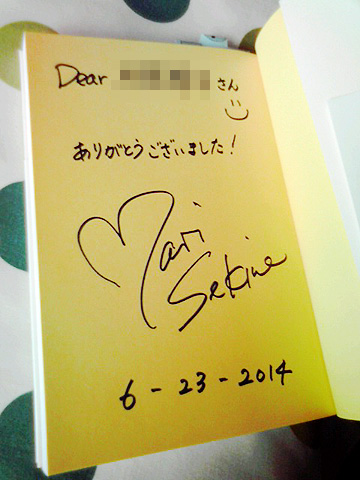 Dear さん
ありがとうございました!
Mari
Sekine
6-23-2014